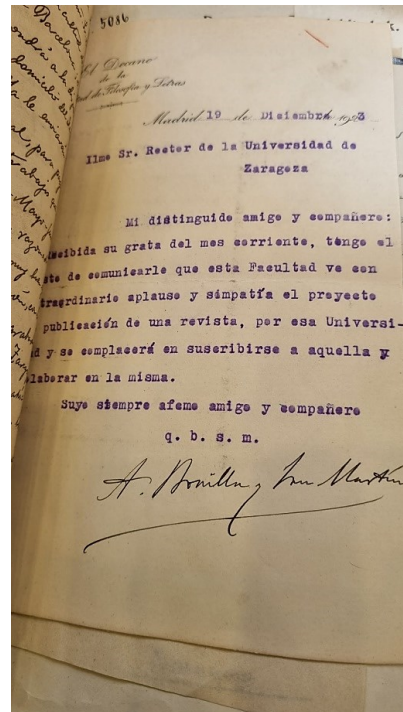 5086
El Decano
de la
de Filosofía y Letras
Madrid 19 de Diciembre 1923
Ilmo Sr. Rector de la Universidad de
Zaragoza
Mi distinguido amigo y compañero:
ecibida su grata del mes corriente, tengo el
sto de comunicarle que esta Facultad ve con
traordinario aplauso y simpatía el proyecto
publicación de una revista, por esa Universi-
d y se complacerá en suscribirse a aquella y
laborar en la misma.
Suyo siempre afcmo amigo y compañero
q. b. s. m.
A. Bonilla y San Martín